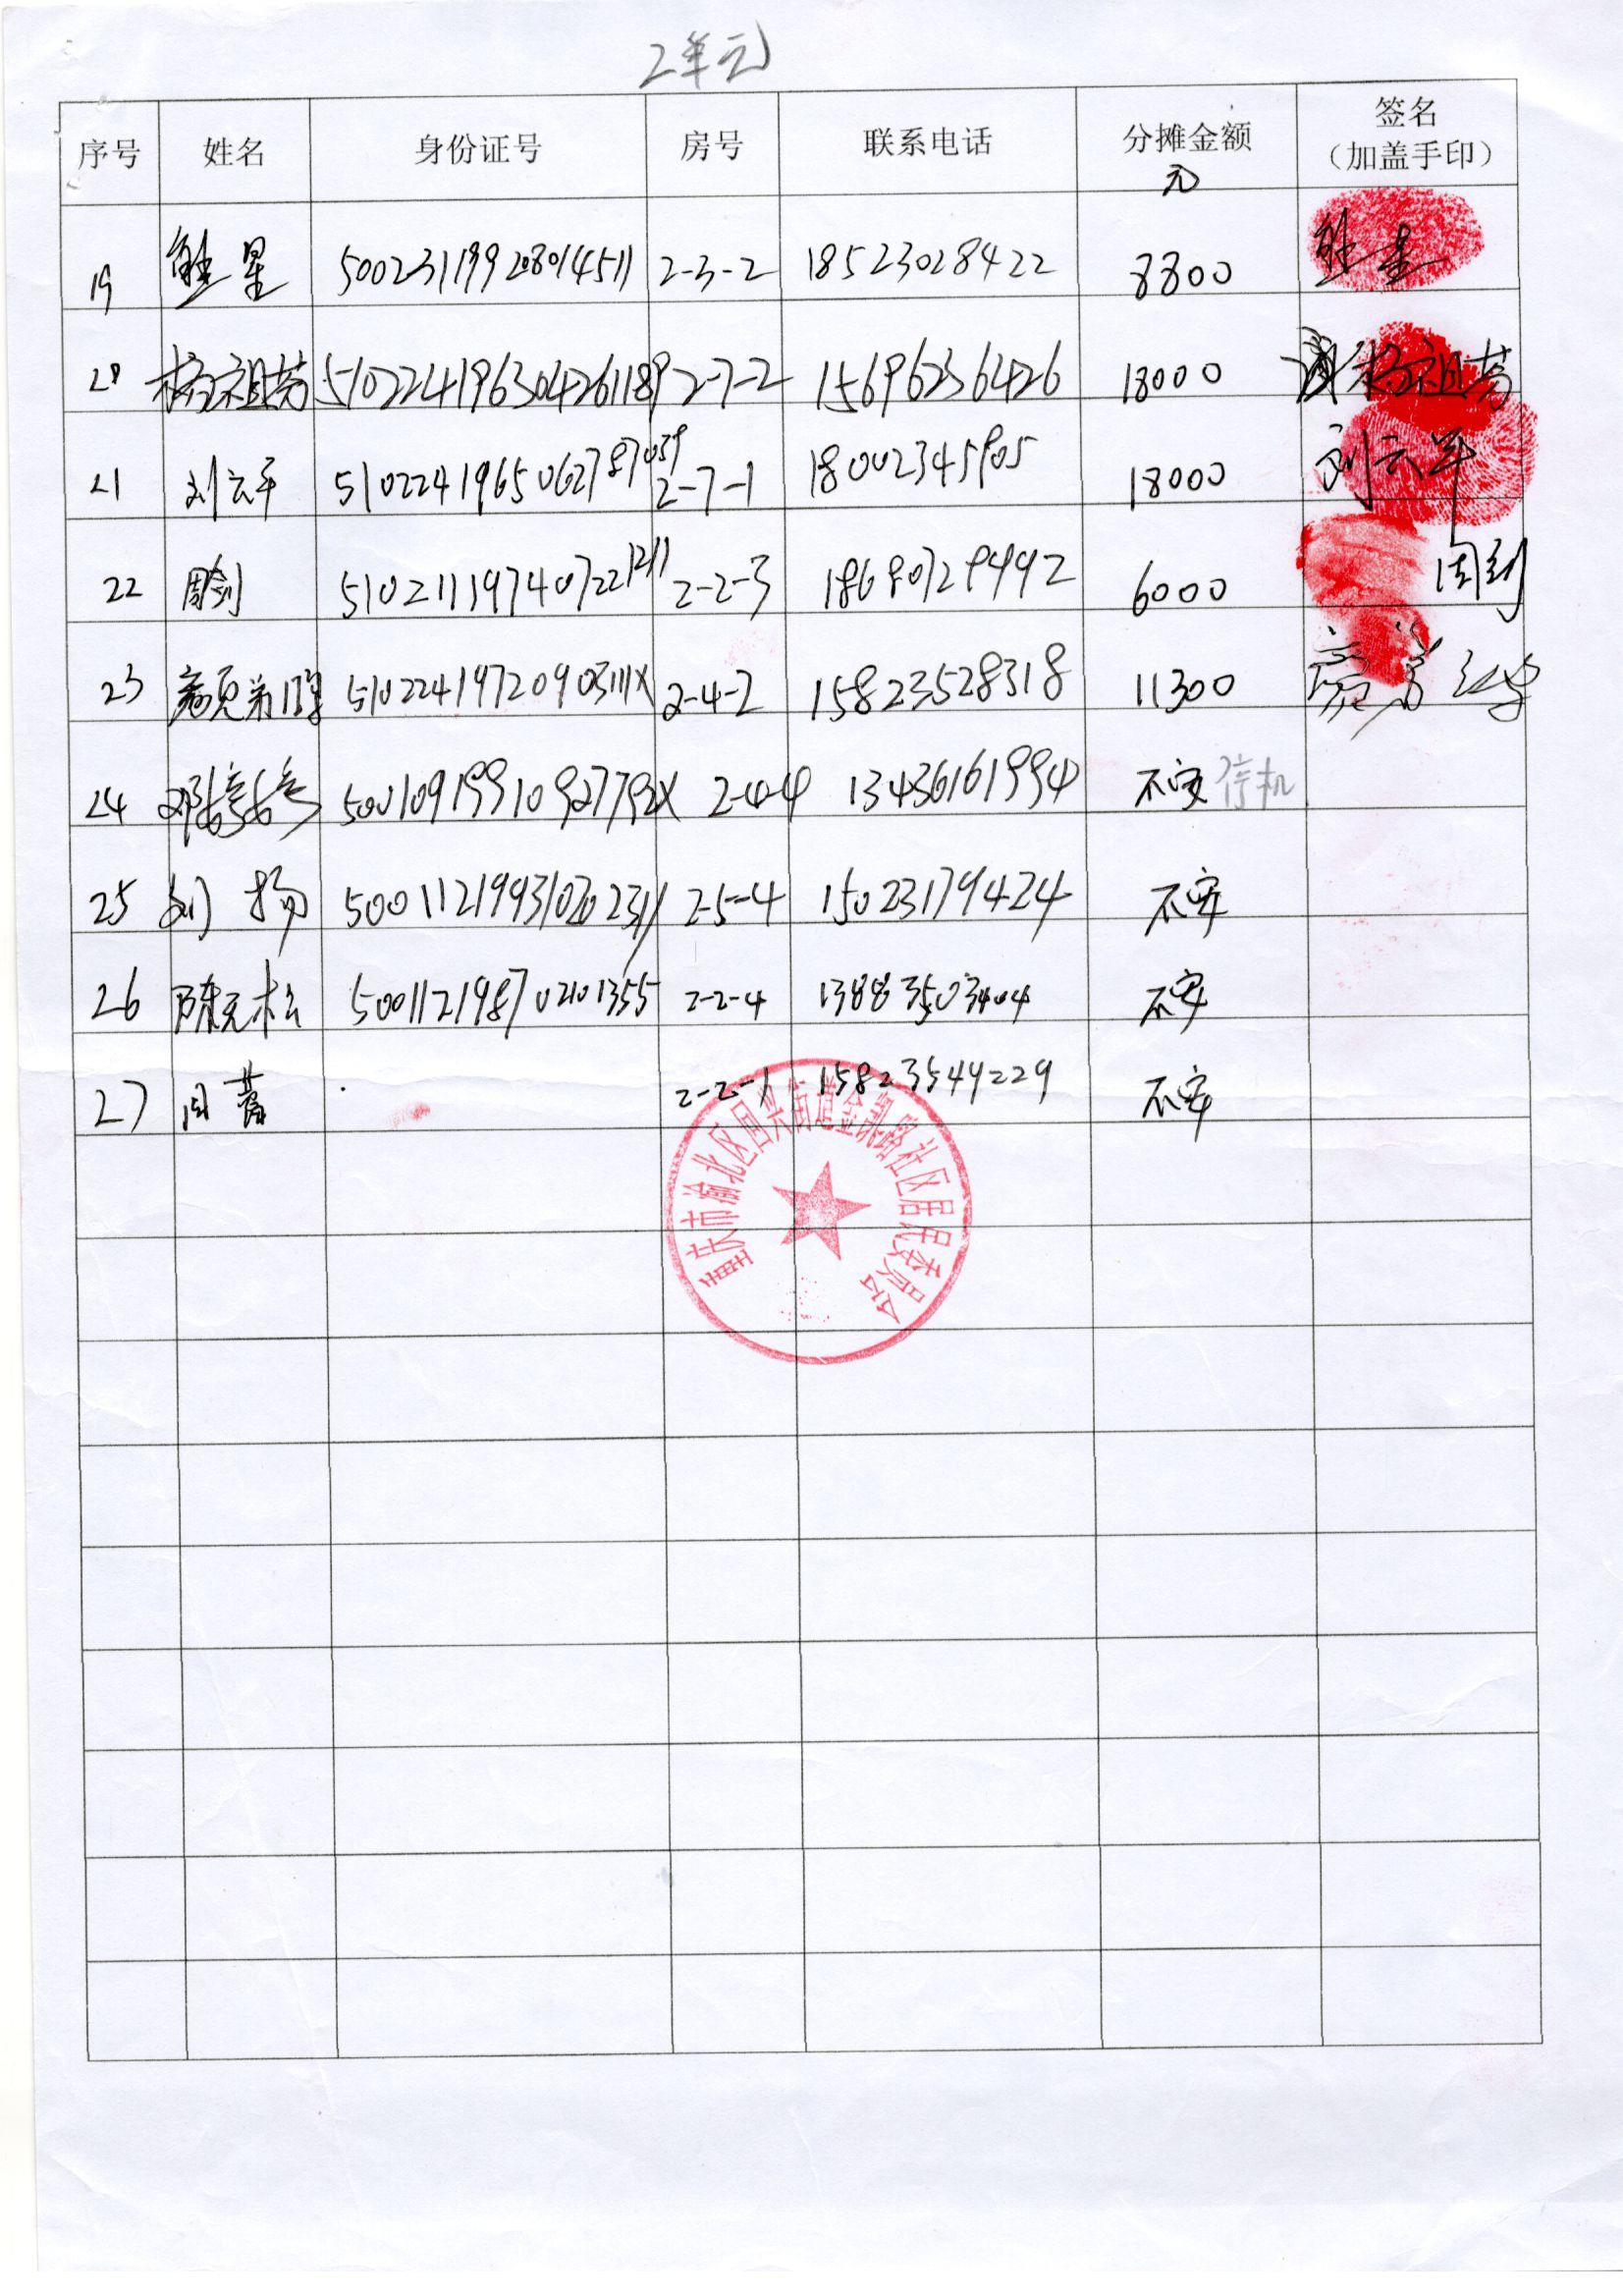 2单元
序号 姓名 身份证号 房号 联系电话 分摊金额 元 签名 (加盖手印)
19 熊星 500231199208014511 2-3-2 18523028422 8800 熊星
20 杨祖芳 510224196304261189 2-7-2 15696236426 18000 杨祖芳
21 刘云平 2-7-1 18002345905 18000 刘云平
22 周剑 510211197407221211 2-2-3 18680729492 6000 周剑
23 51022419720903111X 2-4-2 15823528318 11300
24 2-4-4 13436161994 不安 停机
25 刘扬 2-5-4 15023179424 不安
26 陈元松 500112198702101355 2-2-4 13883503404 不安
27 周蕾 2-2-1 15823549229 不安
重庆市渝北区回兴街道金凯路社区居民委员会